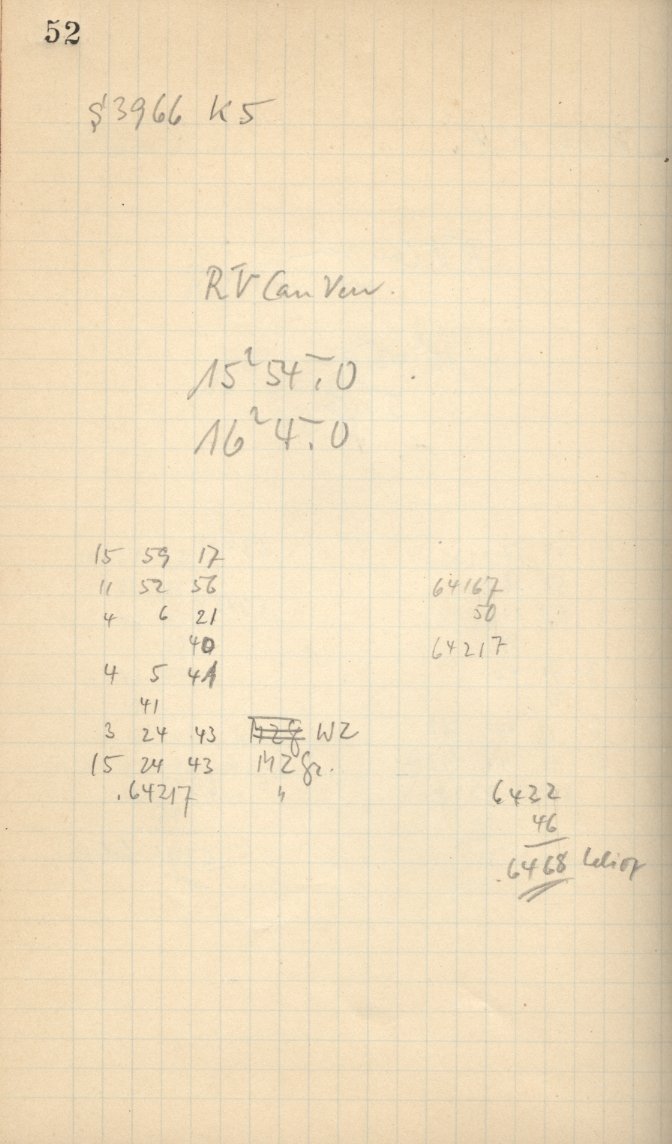 52
S 3966 K5
RV Can Ven.
15ʰ 54ᵐ.0
16ʰ 4ᵐ.0
15 59 17
11 52 56
4 6 21
40
4 5 41
41
3 24 43 MZG WZ
15 24 43 MZGr.
.64217 "
64167
50
64217
6422
46
6468 helioz